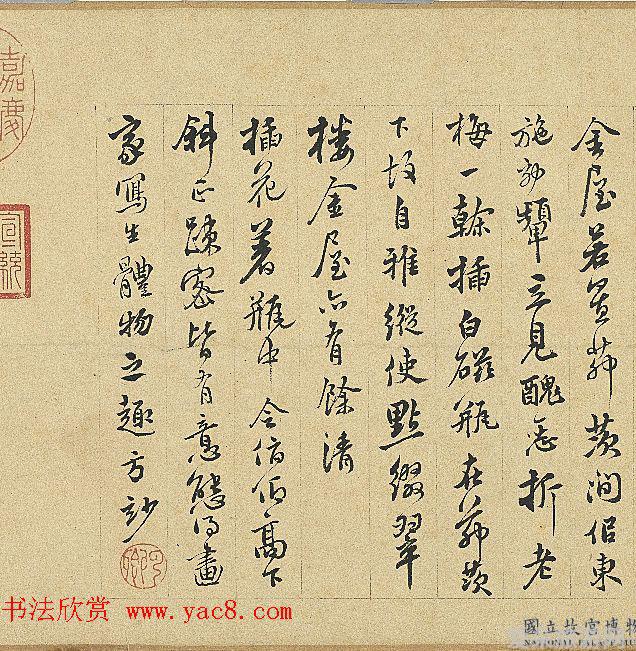 金屋若置茆茨间但东
施効颦立见醜恶折老
梅一榦插白磁瓶在茆茨
下故自雅縱使點缀翠
楼金屋亦有餘清
插花着瓶中令俯仰高下
斜正踈密皆有意態得畫
家寫生體物之趣方妙
嘉慶
宣統
书法欣赏 www.yac8.com
國立故宮博物
NATIONAL PALACE MUSEUM